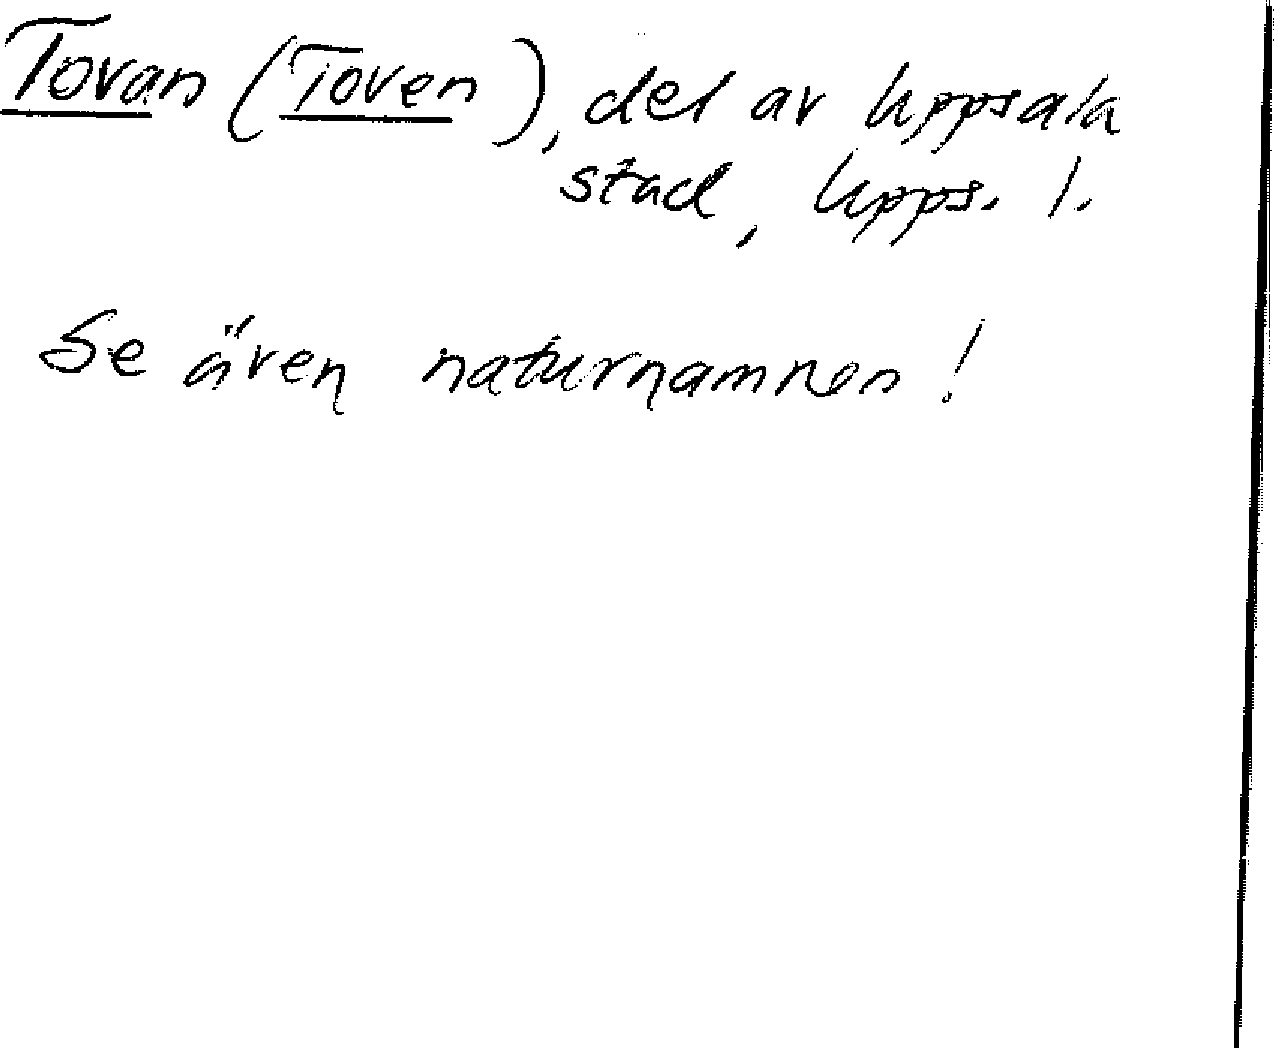 Tovan (Toven), del av Uppsala
stad, Upps. l.
Se även naturnamnen!